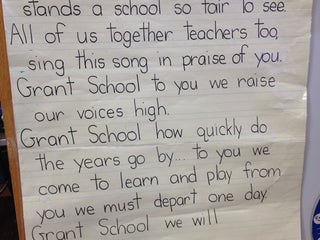 stands a school so fair to see.
All of us together teachers too,
sing this song in praise of you.
Grant School to you we raise
our voices high.
Grant School how quickly do
the years go by... to you we
come to learn and play from
you we must depart one day
Grant School we will